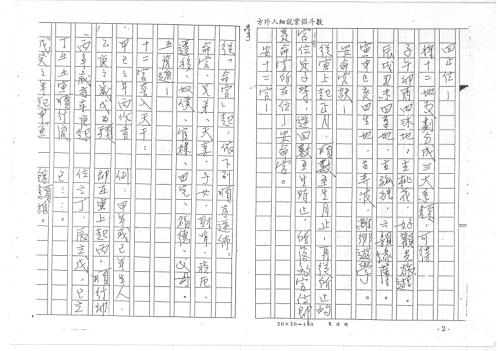 方外人細說紫微斗數
四正位：
將十二地支劃分成三大系類，可得
子午卯酉四沐地，主桃花，好觀光旅遊。
辰戌丑未四墓地，主孤獨，六親緣薄。
寅申巳亥四生地，主奔波，離鄉遊學。
安命宮訣：
從寅宮上起正月，順數至生月止，再從所止的
宮位起子時，逆回數至生時止，所落的宮位即
是命宮所在位：安命宮。
安十二宮：
20×20=400
-2-
從「命宮」起，依下列順序逆佈。
命宮、兄弟、夫妻、子女、財帛、疾厄、
遷移、奴僕、官祿、田宅、福德、父母。
五虎遁：
十二宮套入天干：
甲己之年丙作首
例：甲年或己年生人，
乙庚之歲戊為頭
即在寅上起丙，順行卯
丙辛歲首尋庚起
位一丁，辰一戊，巳一
丁壬壬寅順行流
己……。
戊癸之年起甲寅